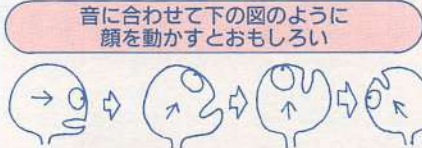 音に合わせて下の図のように
顔を動かすとおもしろい